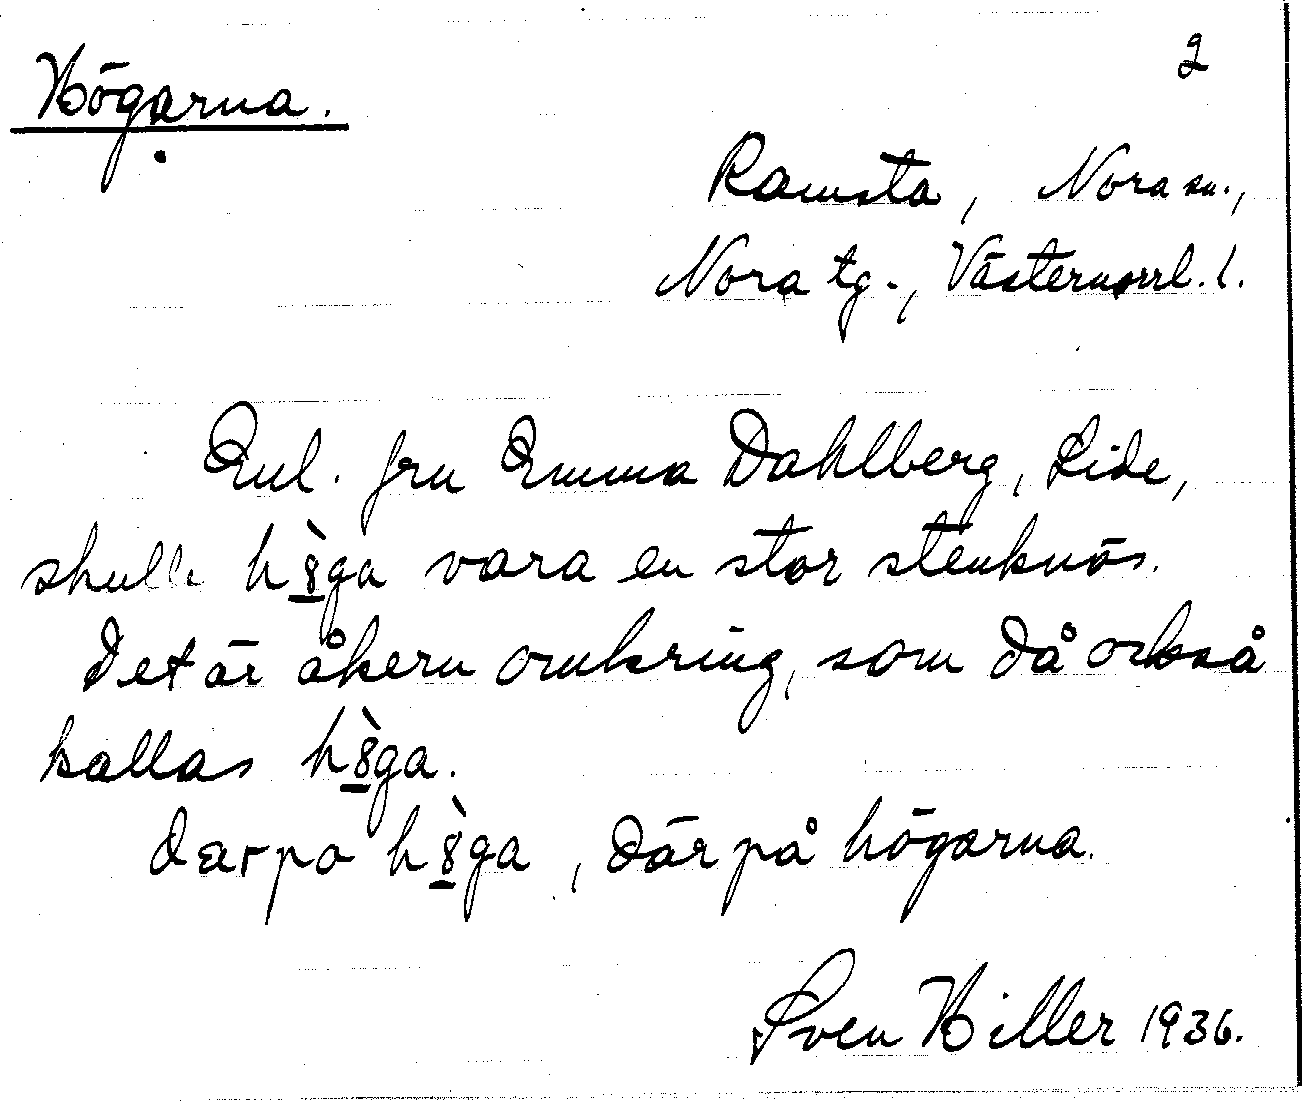 2
Högarna.
Ramsta, Nora sn.,
Nora tg., Västernorrl. l.
Enl. fru Emma Dahlberg, Lide,
skulle h8̀ga vara en stor stenknös.
Det är åkern omkring, som då också
kallas h8̀ga.
darpo h8̀ga, där på högarna.
Sven Hiller 1936.